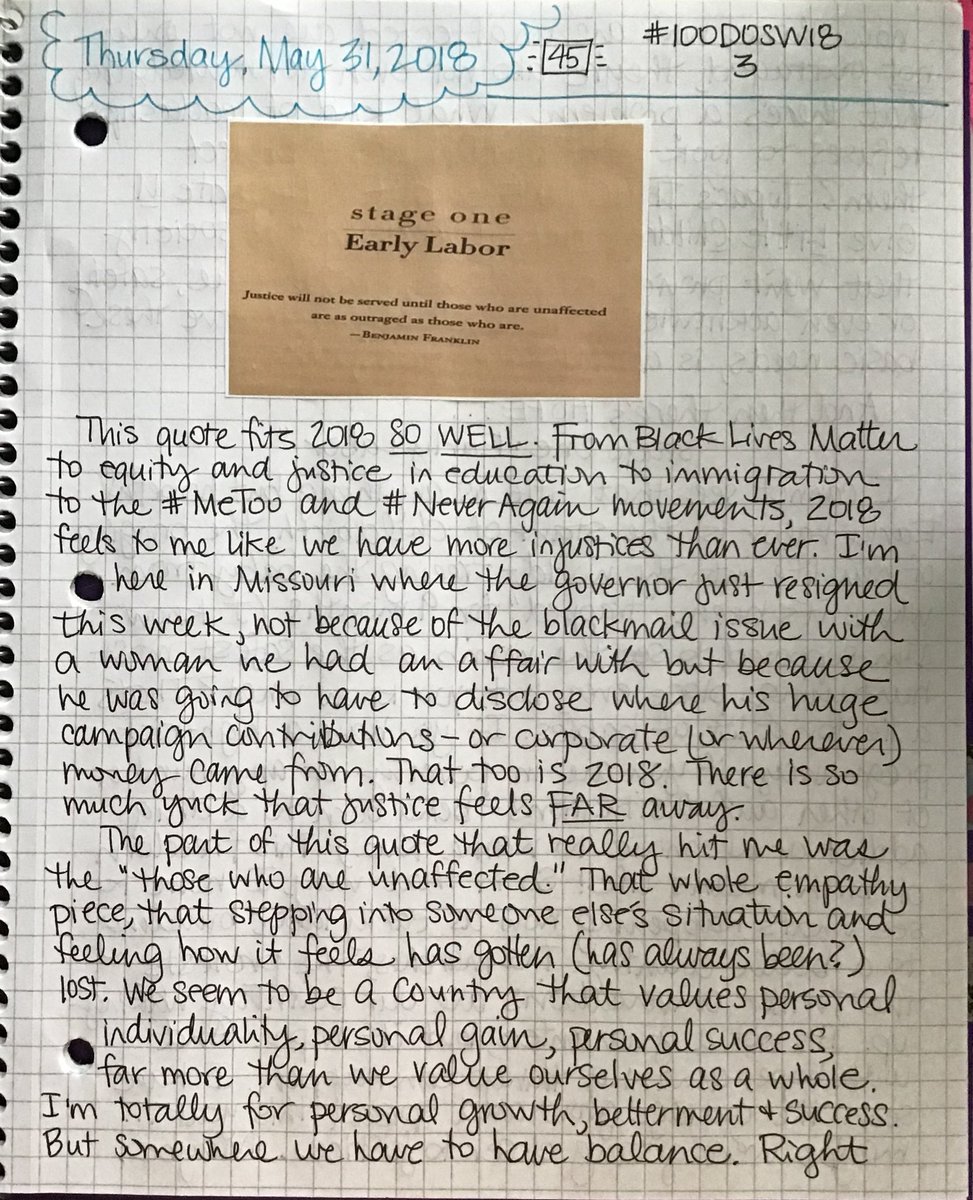 Thursday, May 31, 2018
45
#100DOSW18
3
stage one
Early Labor
Justice will not be served until those who are unaffected
are as outraged as those who are.
—Benjamin Franklin
This quote fits 2018 SO WELL. From Black Lives Matter
to equity and justice in education to immigration
to the #MeToo and #NeverAgain movements, 2018
feels to me like we have more injustices than ever. I'm
here in Missouri where the governor just resigned
this week, not because of the blackmail issue with
a woman he had an affair with but because
he was going to have to disclose where his huge
campaign contributions – or corporate (or wherever)
money came from. That too is 2018. There is so
much yuck that justice feels FAR away.
The part of this quote that really hit me was
the "those who are unaffected." That whole empathy
piece, that stepping into someone else's situation and
feeling how it feels has gotten (has always been?)
lost. We seem to be a country that values personal
individuality, personal gain, personal success,
far more than we value ourselves as a whole.
I'm totally for personal growth, betterment + success.
But somewhere we have to have balance. Right